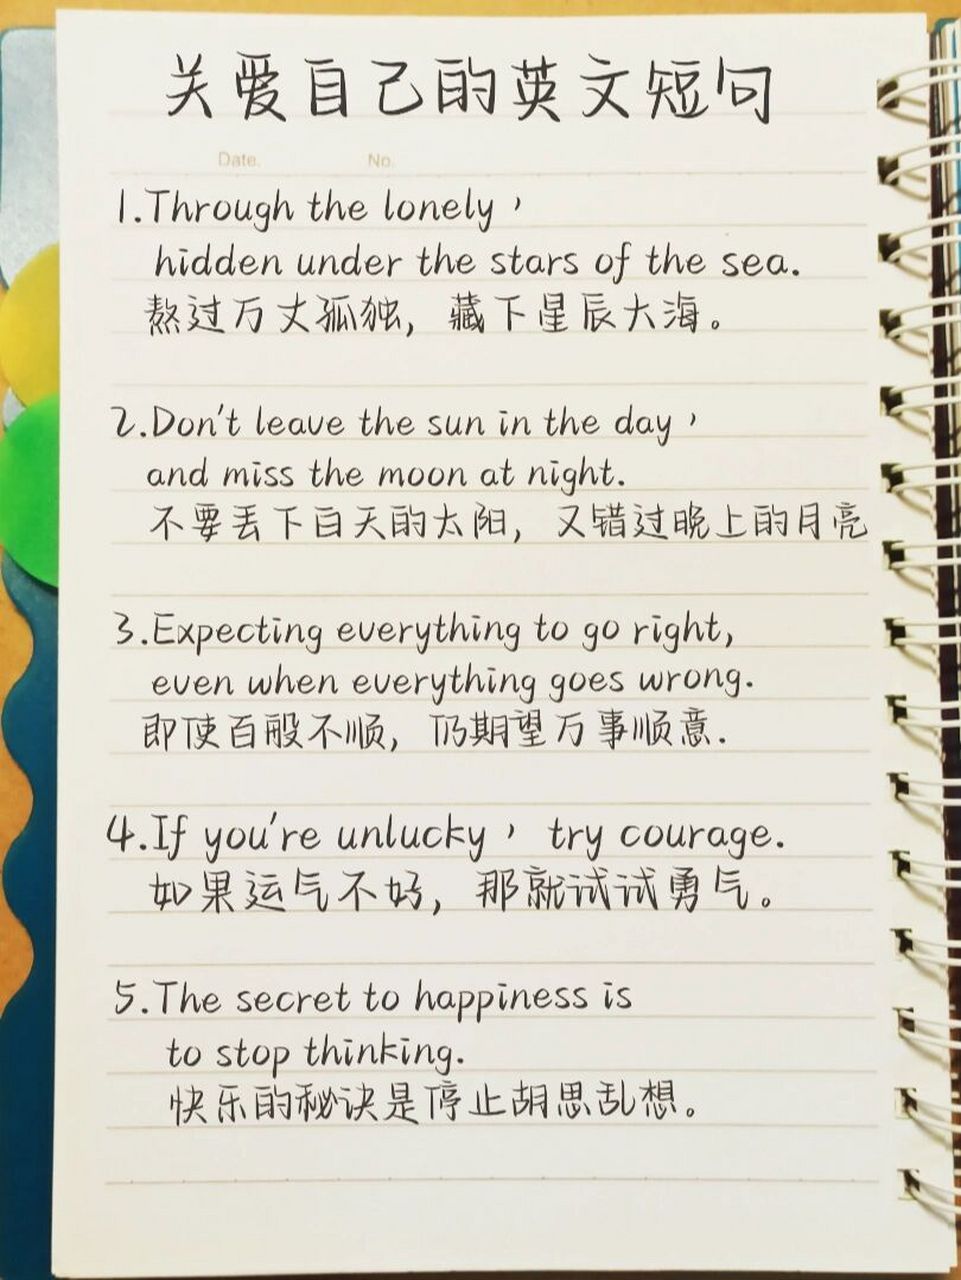 关爱自己的英文短句
Date. No.
1.Through the lonely，
hidden under the stars of the sea.
熬过万丈孤独，藏下星辰大海。
2.Don't leave the sun in the day，
and miss the moon at night.
不要丢下白天的太阳，又错过晚上的月亮
3.Expecting everything to go right,
even when everything goes wrong.
即使百般不顺，仍期望万事顺意.
4.If you're unlucky， try courage.
如果运气不好，那就试试勇气。
5.The secret to happiness is
to stop thinking.
快乐的秘诀是停止胡思乱想。